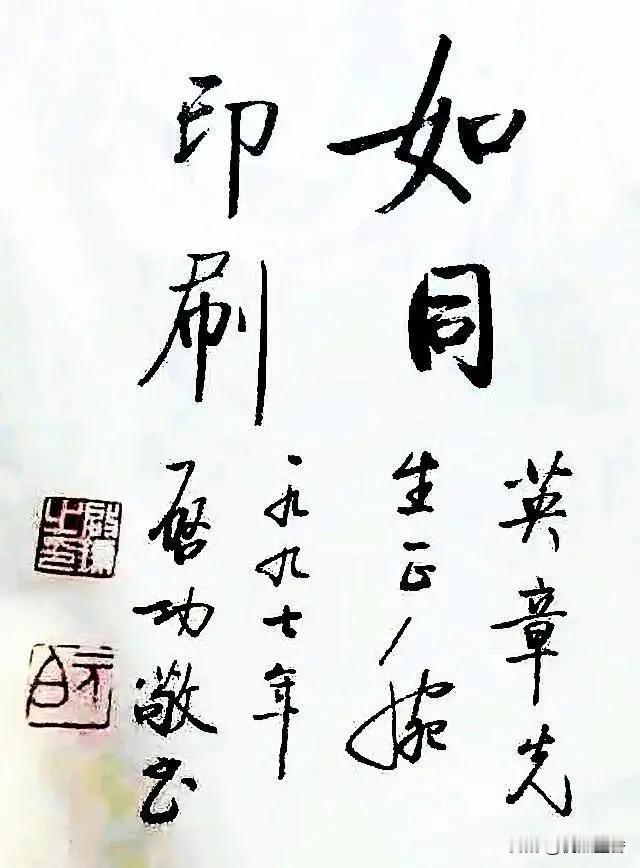 如同
印刷
英章先
生正腕
一九九七年
启功敬书
元白